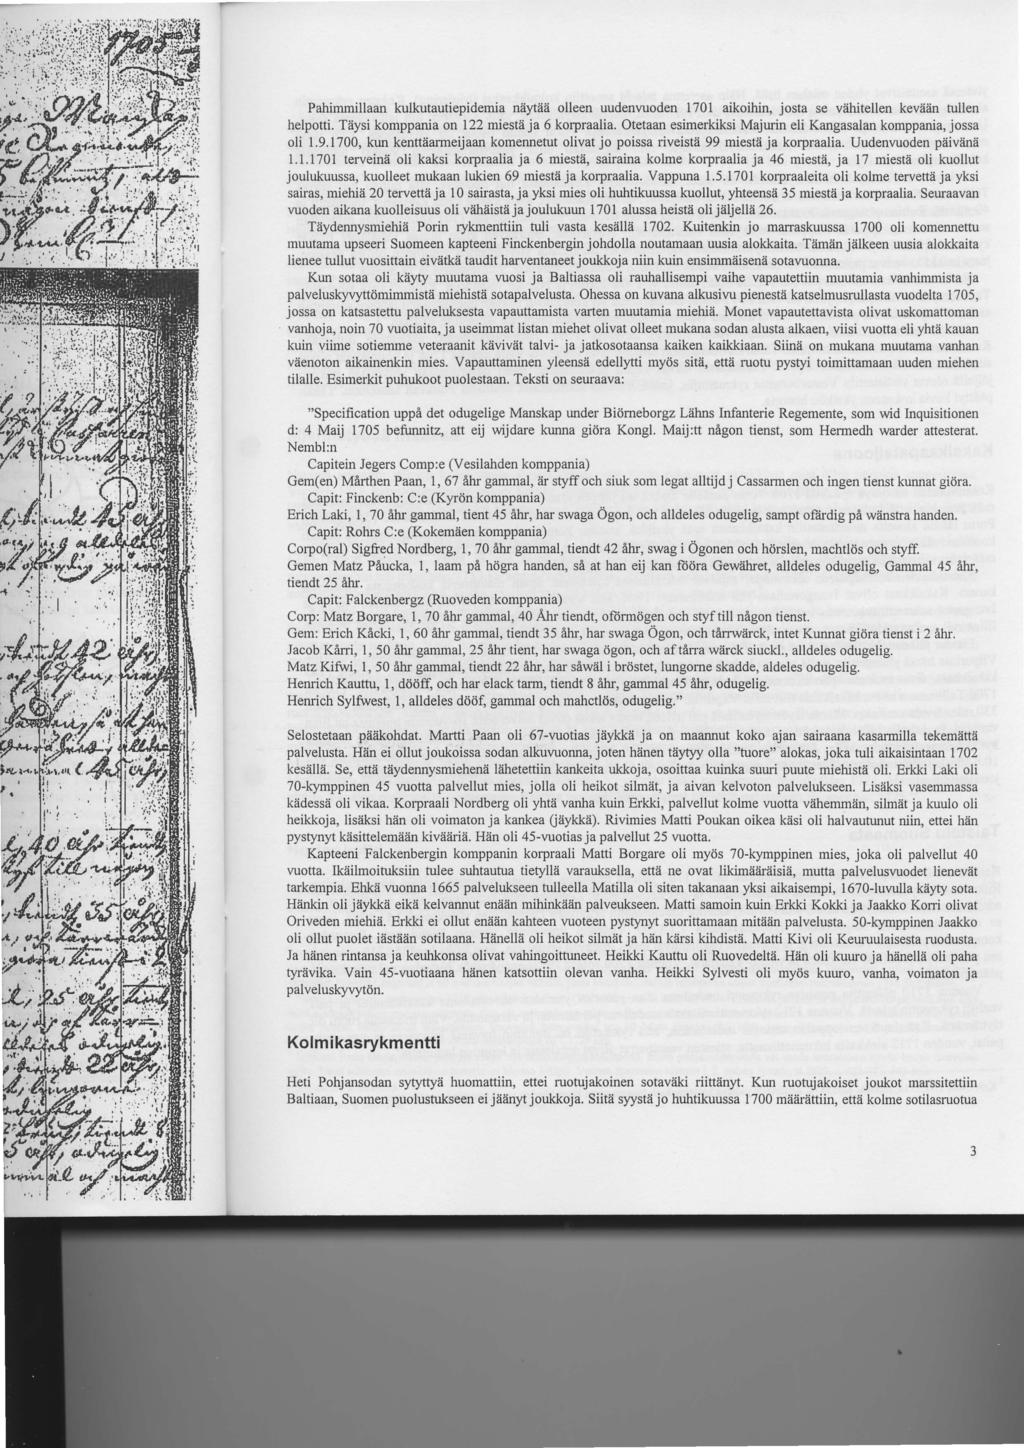 1705
Pahimmillaan kulkutautiepidemia näytää olleen uudenvuoden 1701 aikoihin, josta se vähitellen kevään tullen
helpotti. Täysi komppania on 122 miestä ja 6 korpraalia. Otetaan esimerkiksi Majurin eli Kangasalan komppania, jossa
oli 1.9.1700, kun kenttäarmeijaan komennetut olivat jo poissa riveistä 99 miestä ja korpraalia. Uudenvuoden päivänä
1.1.1701 terveinä oli kaksi korpraalia ja 6 miestä, sairaina kolme korpraalia ja 46 miestä, ja 17 miestä oli kuollut
joulukuussa, kuolleet mukaan lukien 69 miestä ja korpraalia. Vappuna 1.5.1701 korpraaleita oli kolme tervettä ja yksi
sairas, miehiä 20 tervettä ja 10 sairasta, ja yksi mies oli huhtikuussa kuollut, yhteensä 35 miestä ja korpraalia. Seuraavan
vuoden aikana kuolleisuus oli vähäistä ja joulukuun 1701 alussa heistä oli jäljellä 26.
Täydennysmiehiä Porin rykmenttiin tuli vasta kesällä 1702. Kuitenkin jo marraskuussa 1700 oli komennettu
muutama upseeri Suomeen kapteeni Finckenbergin johdolla noutamaan uusia alokkaita. Tämän jälkeen uusia alokkaita
lienee tullut vuosittain eivätkä taudit harventaneet joukkoja niin kuin ensimmäisenä sotavuonna.
Kun sotaa oli käyty muutama vuosi ja Baltiassa oli rauhallisempi vaihe vapautettiin muutamia vanhimmista ja
palveluskyvyttömimmistä miehistä sotapalvelusta. Ohessa on kuvana alkusivu pienestä katselmusrullasta vuodelta 1705,
jossa on katsastettu palveluksesta vapauttamista varten muutamia miehiä. Monet vapautettavista olivat uskomattoman
vanhoja, noin 70 vuotiaita, ja useimmat listan miehet olivat olleet mukana sodan alusta alkaen, viisi vuotta eli yhtä kauan
kuin viime sotiemme veteraanit kävivät talvi- ja jatkosotaansa kaiken kaikkiaan. Siinä on mukana muutama vanhan
väenoton aikainenkin mies. Vapauttaminen yleensä edellytti myös sitä, että ruotu pystyi toimittamaan uuden miehen
tilalle. Esimerkit puhukoot puolestaan. Teksti on seuraava:
"Specification uppå det odugelige Manskap under Biörneborgz Lähns Infanterie Regemente, som wid Inquisitionen
d: 4 Maij 1705 befunnitz, att eij wijdare kunna giöra Kongl. Maij:tt någon tienst, som Hermedh warder attesterat.
Nembl:n
Capitein Jegers Comp:e (Vesilahden komppania)
Gem(en) Mårthen Paan, 1, 67 åhr gammal, är styff och siuk som legat alltijd j Cassarmen och ingen tienst kunnat giöra.
Capit: Finckenb: C:e (Kyrön komppania)
Erich Laki, 1, 70 åhr gammal, tient 45 åhr, har swaga Ögon, och alldeles odugelig, sampt ofärdig på wänstra handen.
Capit: Rohrs C:e (Kokemäen komppania)
Corpo(ral) Sigfred Nordberg, 1, 70 åhr gammal, tiendt 42 åhr, swag i Ögonen och hörslen, machtlös och styff.
Gemen Matz Påucka, 1, laam på högra handen, så at han eij kan fööra Gewähret, alldeles odugelig, Gammal 45 åhr,
tiendt 25 åhr.
Capit: Falckenbergz (Ruoveden komppania)
Corp: Matz Borgare, 1, 70 åhr gammal, 40 Åhr tiendt, oförmögen och styf till någon tienst.
Gem: Erich Kåcki, 1, 60 åhr gammal, tiendt 35 åhr, har swaga Ögon, och tårrwärck, intet Kunnat giöra tienst i 2 åhr.
Jacob Kårri, 1, 50 åhr gammal, 25 åhr tient, har swaga ögon, och af tårra wärck siuckl., alldeles odugelig.
Matz Kifwi, 1, 50 åhr gammal, tiendt 22 åhr, har såwäl i bröstet, lungorne skadde, aldeles odugelig.
Henrich Kauttu, 1, dööff, och har elack tarm, tiendt 8 åhr, gammal 45 åhr, odugelig.
Henrich Sylfwest, 1, alldeles dööf, gammal och mahctlös, odugelig."
Selostetaan pääkohdat. Martti Paan oli 67-vuotias jäykkä ja on maannut koko ajan sairaana kasarmilla tekemättä
palvelusta. Hän ei ollut joukoissa sodan alkuvuonna, joten hänen täytyy olla "tuore" alokas, joka tuli aikaisintaan 1702
kesällä. Se, että täydennysmiehenä lähetettiin kankeita ukkoja, osoittaa kuinka suuri puute miehistä oli. Erkki Laki oli
70-kymppinen 45 vuotta palvellut mies, jolla oli heikot silmät, ja aivan kelvoton palvelukseen. Lisäksi vasemmassa
kädessä oli vikaa. Korpraali Nordberg oli yhtä vanha kuin Erkki, palvellut kolme vuotta vähemmän, silmät ja kuulo oli
heikkoja, lisäksi hän oli voimaton ja kankea (jäykkä). Rivimies Matti Poukan oikea käsi oli halvautunut niin, ettei hän
pystynyt käsittelemään kivääriä. Hän oli 45-vuotias ja palvellut 25 vuotta.
Kapteeni Falckenbergin komppanin korpraali Matti Borgare oli myös 70-kymppinen mies, joka oli palvellut 40
vuotta. Ikäilmoituksiin tulee suhtautua tietyllä varauksella, että ne ovat likimääräisiä, mutta palvelusvuodet lienevät
tarkempia. Ehkä vuonna 1665 palvelukseen tulleella Matilla oli siten takanaan yksi aikaisempi, 1670-luvulla käyty sota.
Hänkin oli jäykkä eikä kelvannut enään mihinkään palveukseen. Matti samoin kuin Erkki Kokki ja Jaakko Korri olivat
Oriveden miehiä. Erkki ei ollut enään kahteen vuoteen pystynyt suorittamaan mitään palvelusta. 50-kymppinen Jaakko
oli ollut puolet iästään sotilaana. Hänellä oli heikot silmät ja hän kärsi kihdistä. Matti Kivi oli Keuruulaisesta ruodusta.
Ja hänen rintansa ja keuhkonsa olivat vahingoittuneet. Heikki Kauttu oli Ruovedeltä. Hän oli kuuro ja hänellä oli paha
tyrävika. Vain 45-vuotiaana hänen katsottiin olevan vanha. Heikki Sylvesti oli myös kuuro, vanha, voimaton ja
palveluskyvytön.
Kolmikasrykmentti
Heti Pohjansodan sytyttyä huomattiin, ettei ruotujakoinen sotaväki riittänyt. Kun ruotujakoiset joukot marssitettiin
Baltiaan, Suomen puolustukseen ei jäänyt joukkoja. Siitä syystä jo huhtikuussa 1700 määrättiin, että kolme sotilasruotua
3